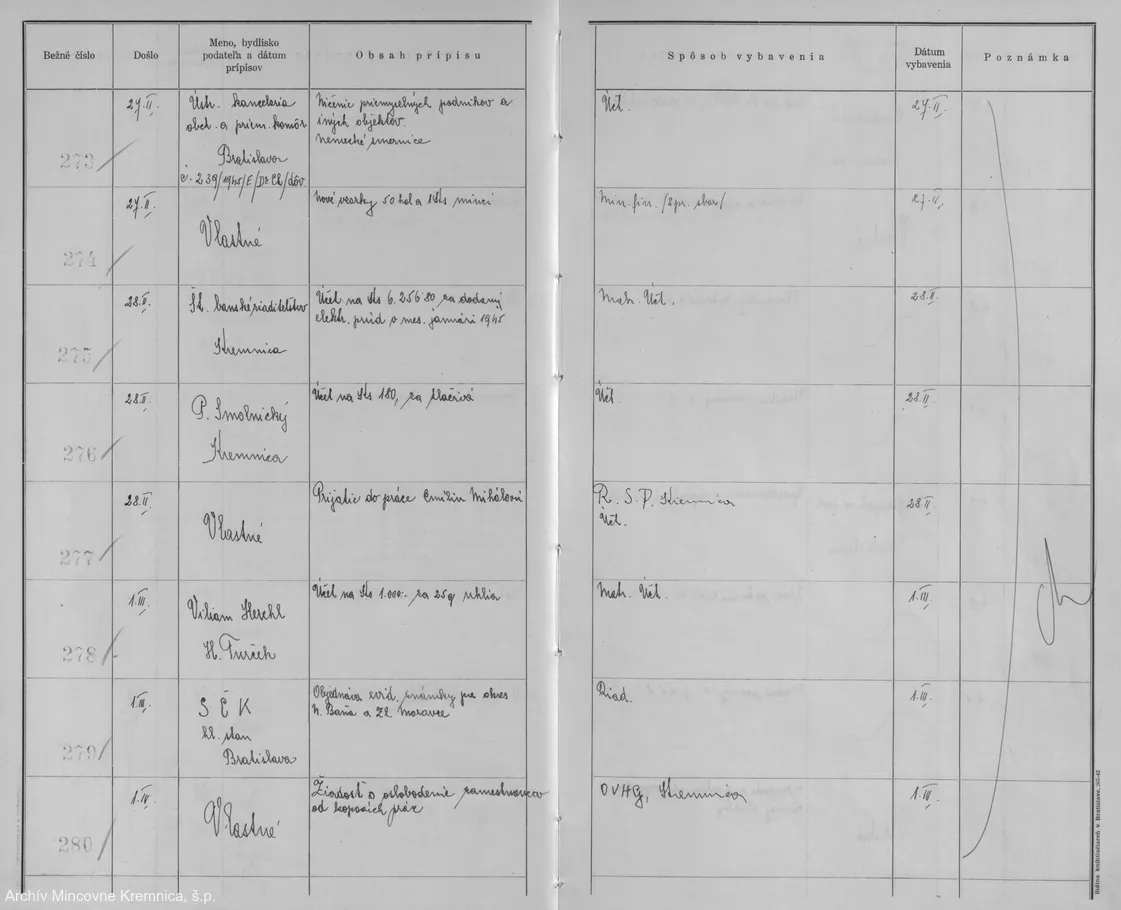 Bežné číslo
Došlo
Meno, bydlisko
podateľa a dátum
prípisov
Obsah prípisu
Spôsob vybavenia
Dátum
vybavenia
Poznámka
273
27.II.
Ústr. kancelaria
obch. a priem. komôr
Bratislava
č. 239/1945/E/Dr Ch/dôv.
Ničenie priemyselných podnikov a
iných objektov.
nemecké smernice
Úct.
27.II.
274
27.II.
Vlastné
Nové vzorky 50 hal a 1 Ks mincí
Min. fin. /Zpr. sbor/
27.II.
275
28.II.
Št. banské riaditeľstvo
Kremnica
Účet na Ks 6.256.80 za dodaný
elektr. prúd v mes. januári 1945
Mat. Úct.
28.II.
276
28.II.
P. Smolnický
Kremnica
Účet na Ks 180, za tlačivá
Úct.
28.II.
277
28.II.
Vlastné
Prijatie do práce Mihálovú
R. S. P. Kremnica
Úct.
28.II.
278
1.III.
Viliam Herchl
H. Turček
Účet na Ks 1.000.- za 25 q uhlia
Mat. Úct.
1.III.
279
1.III.
SČK
hl. stan
Bratislava
Objednáva evid. známky pre okres
N. Baňa a Zl. Moravce
Riad.
1.III.
280
1.III.
Vlastné
Žiadosť o oslobodenie zamestnancov
od kopacích prác
OVHG, Kremnica
1.III.
Archív Mincovne Kremnica, š.p.